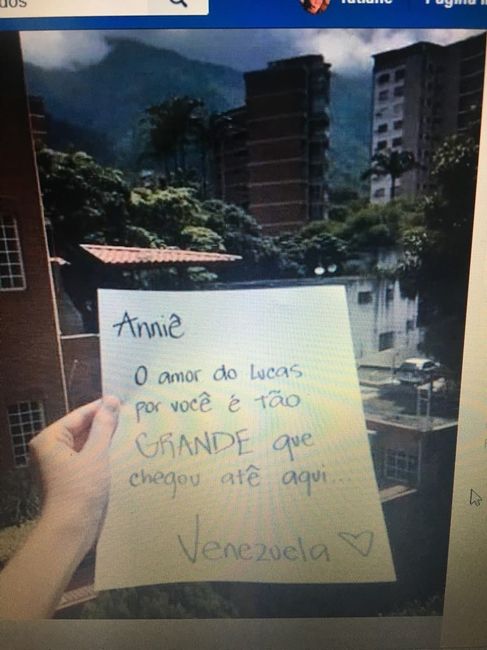 dos
Tatiane
Página
Anniê
O amor do Lucas
por você é tão
GRANDE que
chegou atê aqui...
Venezuela ♡